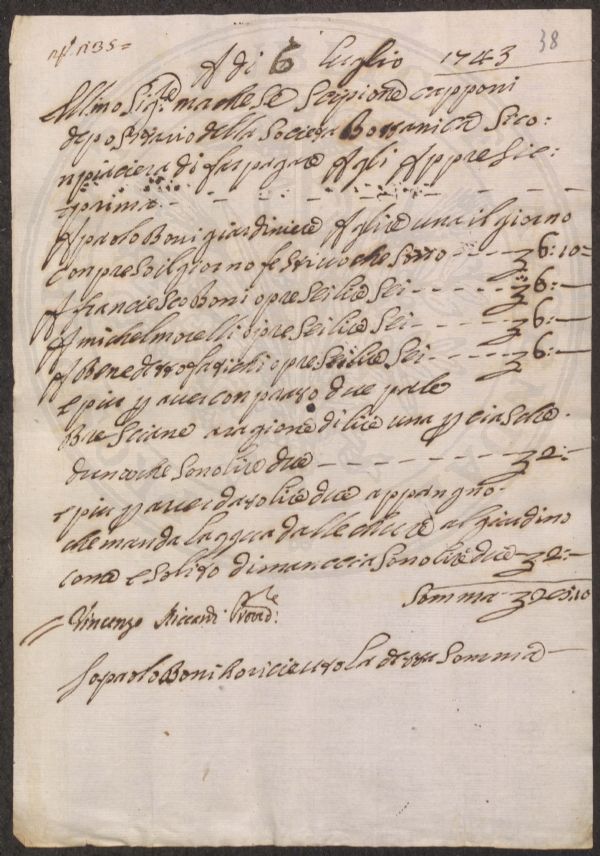 38
A di 6 luglio 1743
Ill.mo Sig.re marchese Scipione capponi
depositario della Società Bottanica Si co:
npiacierà di far pagare Agli Appresic:
prima
A paolo Boni giardiniere A lire una il giorno
conpreso il giorno festivo che sono 6:10=
A franciesco Boni opre sei lire sei 6:—
A michel morelli opre sei lire sei 6:—
A Benedetto opre sei lire sei 6:—
e piu p aver conprato due pale
Bresciane a ragione di lire una p ciascheduna
che sono lire due 2:—
e piu p aver dato lire due a
che manda l'aqqua dalle al giardino
come e solito di mancia sono lire due 2:—
Vincenzo Riccardi Provd:re Somma
Io paolo Boni ho ricieuto la detta somma